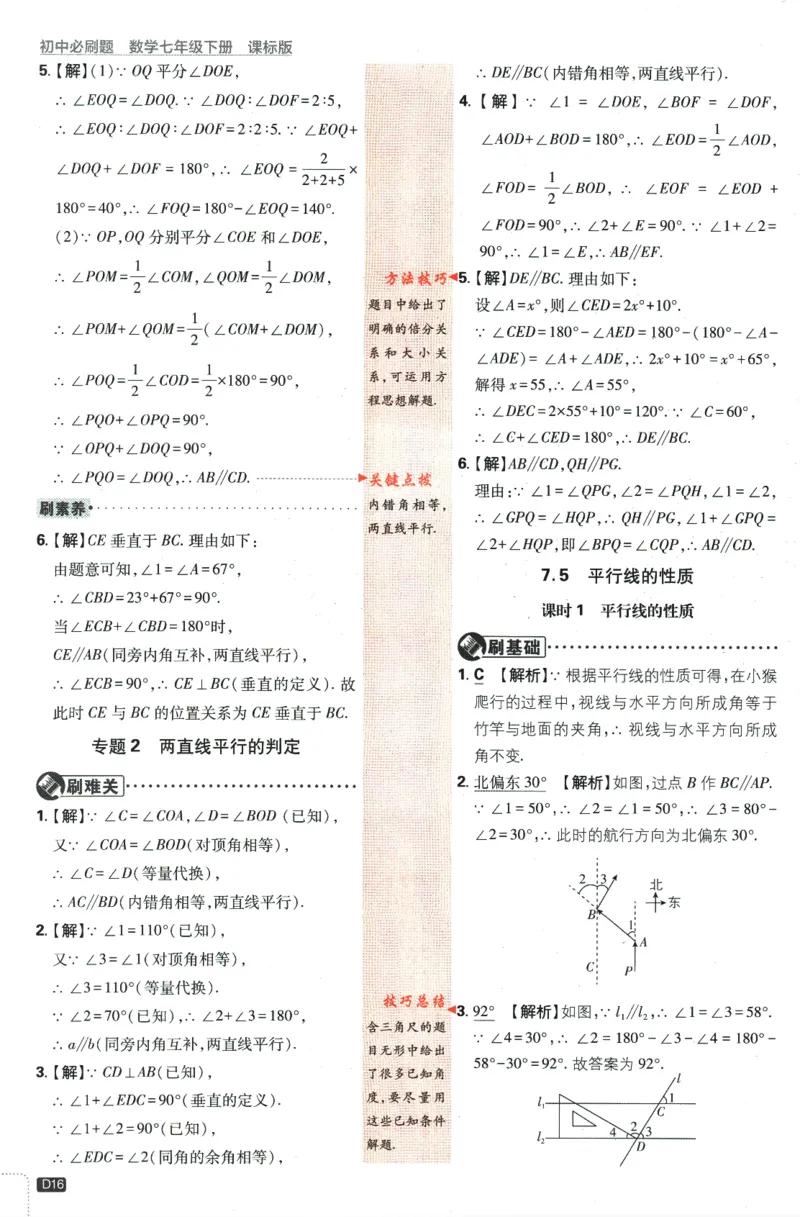 初中必刷题 数学七年级下册 课标版
5.【解】(1)∵ OQ 平分∠DOE,
∴ ∠EOQ=∠DOQ.∵ ∠DOQ∶∠DOF=2∶5,
∴ ∠EOQ∶∠DOQ∶∠DOF=2∶2∶5.∵ ∠EOQ+
∠DOQ+∠DOF=180°,∴ ∠EOQ=2/(2+2+5)×
180°=40°,∴ ∠FOQ=180°-∠EOQ=140°.
(2)∵ OP,OQ 分别平分∠COE 和∠DOE,
∴ ∠POM=1/2∠COM,∠QOM=1/2∠DOM,
∴ ∠POM+∠QOM=1/2(∠COM+∠DOM),
∴ ∠POQ=1/2∠COD=1/2×180°=90°,
∴ ∠PQO+∠OPQ=90°.
∵ ∠OPQ+∠DOQ=90°,
∴ ∠PQO=∠DOQ,∴ AB∥CD.
刷素养
6.【解】CE 垂直于 BC. 理由如下:
由题意可知,∠1=∠A=67°,
∴ ∠CBD=23°+67°=90°.
当∠ECB+∠CBD=180°时,
CE∥AB(同旁内角互补,两直线平行),
∴ ∠ECB=90°,∴ CE⊥BC(垂直的定义). 故
此时 CE 与 BC 的位置关系为 CE 垂直于 BC.
专题2 两直线平行的判定
刷难关
1.【解】∵ ∠C=∠COA,∠D=∠BOD (已知),
又∵ ∠COA=∠BOD(对顶角相等),
∴ ∠C=∠D(等量代换),
∴ AC∥BD(内错角相等,两直线平行).
2.【解】∵ ∠1=110°(已知),
又∵ ∠3=∠1(对顶角相等),
∴ ∠3=110°(等量代换).
∵ ∠2=70°(已知),∴ ∠2+∠3=180°,
∴ a∥b(同旁内角互补,两直线平行).
3.【解】∵ CD⊥AB(已知),
∴ ∠1+∠EDC=90°(垂直的定义).
∵ ∠1+∠2=90°(已知),
∴ ∠EDC=∠2(同角的余角相等),
D16
方法技巧
题目中给出了
明确的倍分关
系和大小关
系,可运用方
程思想解题.
关键点拨
内错角相等,
两直线平行.
技巧总结
含三角尺的题
目无形中给出
了很多已知角
度,要尽量用
这些已知条件
解题.
∴ DE∥BC(内错角相等,两直线平行).
4.【解】∵ ∠1=∠DOE, ∠BOF=∠DOF,
∠AOD+∠BOD=180°,∴ ∠EOD=1/2∠AOD,
∠FOD=1/2∠BOD, ∴ ∠EOF=∠EOD+
∠FOD=90°,∴ ∠2+∠E=90°.∵ ∠1+∠2=
90°,∴ ∠1=∠E,∴ AB∥EF.
5.【解】DE∥BC. 理由如下:
设∠A=x°,则∠CED=2x°+10°.
∵ ∠CED=180°-∠AED=180°-(180°-∠A-
∠ADE)=∠A+∠ADE,∴ 2x°+10°=x°+65°,
解得 x=55,∴ ∠A=55°,
∴ ∠DEC=2×55°+10°=120°.∵ ∠C=60°,
∴ ∠C+∠CED=180°,∴ DE∥BC.
6.【解】AB∥CD,QH∥PG.
理由:∵ ∠1=∠QPG,∠2=∠PQH,∠1=∠2,
∴ ∠GPQ=∠HQP,∴ QH∥PG,∠1+∠GPQ=
∠2+∠HQP,即∠BPQ=∠CQP,∴ AB∥CD.
7.5 平行线的性质
课时1 平行线的性质
刷基础
1. C 【解析】∵ 根据平行线的性质可得,在小猴
爬行的过程中,视线与水平方向所成角等于
竹竿与地面的夹角,∴ 视线与水平方向所成
角不变.
2. 北偏东 30° 【解析】如图,过点 B 作 BC∥AP.
∵ ∠1=50°,∴ ∠2=∠1=50°,∴ ∠3=80°-
∠2=30°,∴ 此时的航行方向为北偏东 30°.
2 3
北
东
B
1
A
C P
3. 92° 【解析】如图,∵ l₁∥l₂,∴ ∠1=∠3=58°.
∵ ∠4=30°,∴ ∠2=180°-∠3-∠4=180°-
58°-30°=92°. 故答案为 92°.
l
l₁ 1
C
l₂ 4 2 3
D